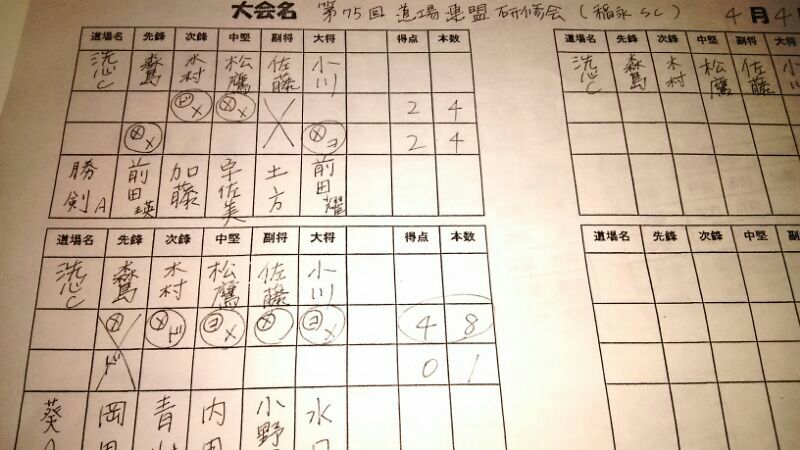 大会名 第75回 道場連盟研修会（稲永SC） 4月4
道場名 先鋒 次鋒 中堅 副将 大将 得点 本数
洗心C 森島 木村 松鷹 佐藤 小川
ドメ メメ 2 4
メメ メコ 2 4
勝剣A 前田瑛 加藤 宇佐美 土方 前田耀
道場名 先鋒 次鋒 中堅 副将 大将 得点 本数
洗心C 森島 木村 松鷹 佐藤 小川
メ メド コメ メ コメ 4 8
ド 0 1
葵 岡 青 内 小野 水
道場名 先鋒 次鋒 中堅 副将 大
洗心C 森島 木村 松鷹 佐藤 小川
道場名 先鋒 次鋒 中堅 副将